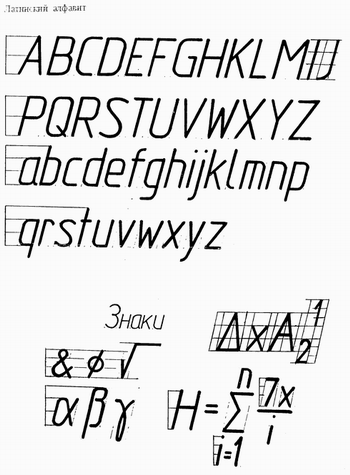 Латинский алфавит
ABCDEFGHKLM
PQRSTUVWXYZ
abcdefghijklmnp
qrstuvwxyz
Знаки
ΔxA₂¹
& φ √
α β γ
H = ∑ⁿᵢ₌₁ 7x/i